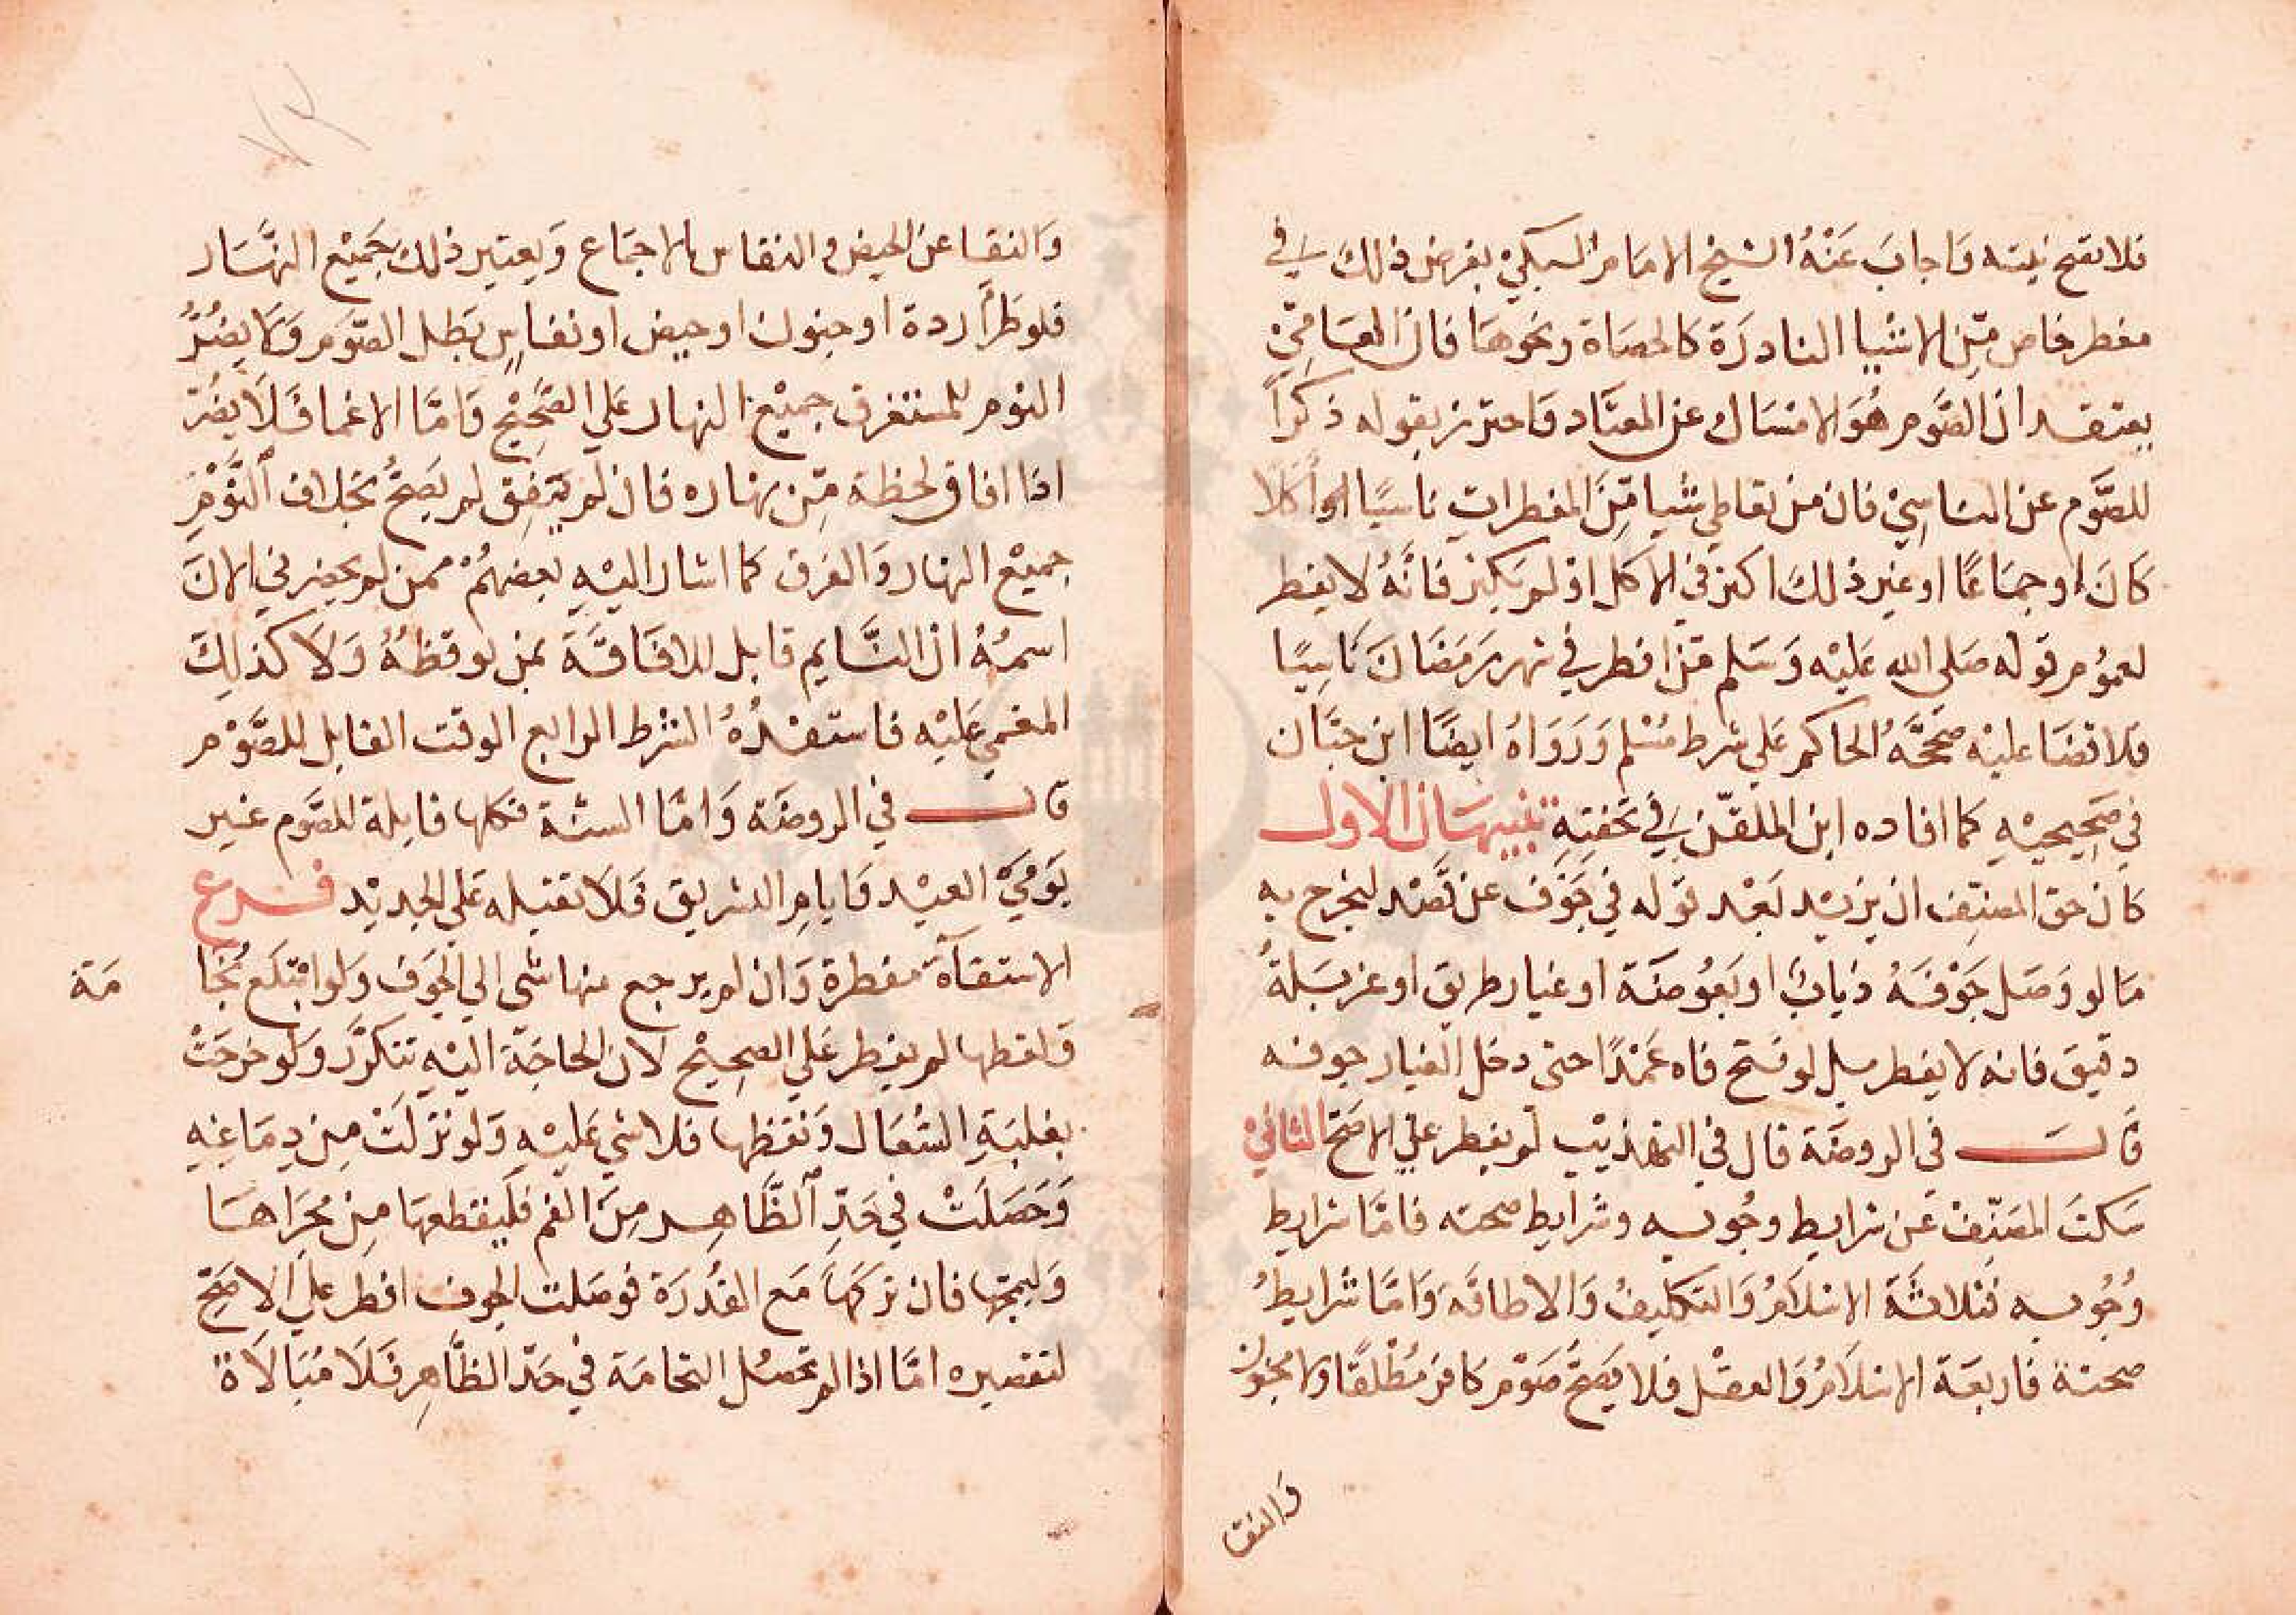 فلا تصح نيته وَاجابَ عَنْهُ الشيخ الامَام السبكي بفرض ذلك في
مفطر خاص مِّن الاشيا النادرَة كالحصَاة ونحوهَا فان العَامِيّ
يعتقد ان الصَّوم هُوَ الامسَاك عن المعتَاد وَاحترز بقوله ذكرًا
للصَّوم عن النَاسِيْ فان من تعاطي شيا مِّنَ المفطراتِ ناسيًا اكلا
كَانَ او جمَاعًا او غير ذلك اكثر في الاكل او لم يكثر فانَّهُ لا يفطر
لعموُم قَوله صَلى الله عَليْه وَسَلم مَن افطر في شهر رَمَضَانَ نَاسِيًا
فلا قضَا عليْه صَححَّهُ الحاكم عَلي شرط مُسْلم وَرَوَاهُ ايضًا ابن حبَّان
في صَحِيحيْهِ كما افاده ابن الملقّن في تحفتِهِ تنبيهَان الاول
كان حق المصَنِّف ان يزيْد بَعْد قوله في جَوَف عن قَصْد ليخرج به
مَا لو وَصَل جَوْفَهُ ذبابٌ او بَعُوضَة او غبار طريق او غربَلةُ
دقيق فانه لا يفطر بل لو فتح فاه عَمْدًا حتى دخل الغبار جوفه
قَالَ في الروضَة قال في التهذيْب لم يفطر علي الاصَح الثانيْ
سَكتَ المصَنّفْ عَن شرايط وجُوبه وشرايط صحته فامَّا شرايط
وُجُوبه فثلاثَة الاسْلاَمُ وَالتكليفُ وَالاطاقَة وَامَّا شرايطُ
صحتة فاربعَة الاسْلاَمُ وَالعقْل فلا يَصَحَّ صَوْم كافر مُطْلَقًا ولا مجنون
وَالنقا
وَالنقا عن الحيض والنفاس بالاجمَاع وَيعتبر ذلكَ جَميْع النهَار
فلو طَرَأ ردة او جنون او حيض او نفاسٍ بَطل الصَّوَم وَلا يضُرُّ
النوْم المستغرق جميْع النهار عَلي الصَّحِيْحِ وَامَّا الاغما فَلاَ يضُرّ
اذا افاق لحظة مِّن نهاره فان لم يَفِق لم يَصحَّ بخلاف النَّوْمِ
جميْع النهار وَالفرق كما اشار اليْهِ بعضهُمْ ممن لم يحضرني الانَ
اسمُهُ ان النَّايم قابل للافَاقَة بمن يوقظهُ وَلاَ كذلِكَ
المغمي عَليْه فاستَفدْهُ الشرْط الرابع الوقت القابل للصَّوْم
قال في الروضَة وَامَّا السنَة فكلها قابلة للصَّوم غير
يَوميْ العيْد وَايام التشريق فَلاَ تقبله عَلي الجديْد فرع
الاستقآة مفطرة وَان لم يرجع منها شى الي الجَوَف وَلو ابْتلَع نُخَا
مَة
وَلفظها لم يفطر عَلي الصحِيْح لان الحاجَة اليْهِ تتكرَّر وَلو خرجَتْ
بغلبَةِ السُّعَال وَنفظها فلا شي عَليْهِ وَلو نَزلَتْ مِن دِمَاغِهِ
وَحَصَلَتْ في حَدِّ الظَّاهِر مِنَ الفم فليقطعهَا مِن مجرَاهَا
وَليمجها فان تركهَا مَع القُدرَة فوصَلت الجوف افطر علي الاصَحِّ
لتقصيره امَّا اذا لم تحصُل النخامَة في حَدّ الظَّاهِر فَلاَ مُبَالاَة